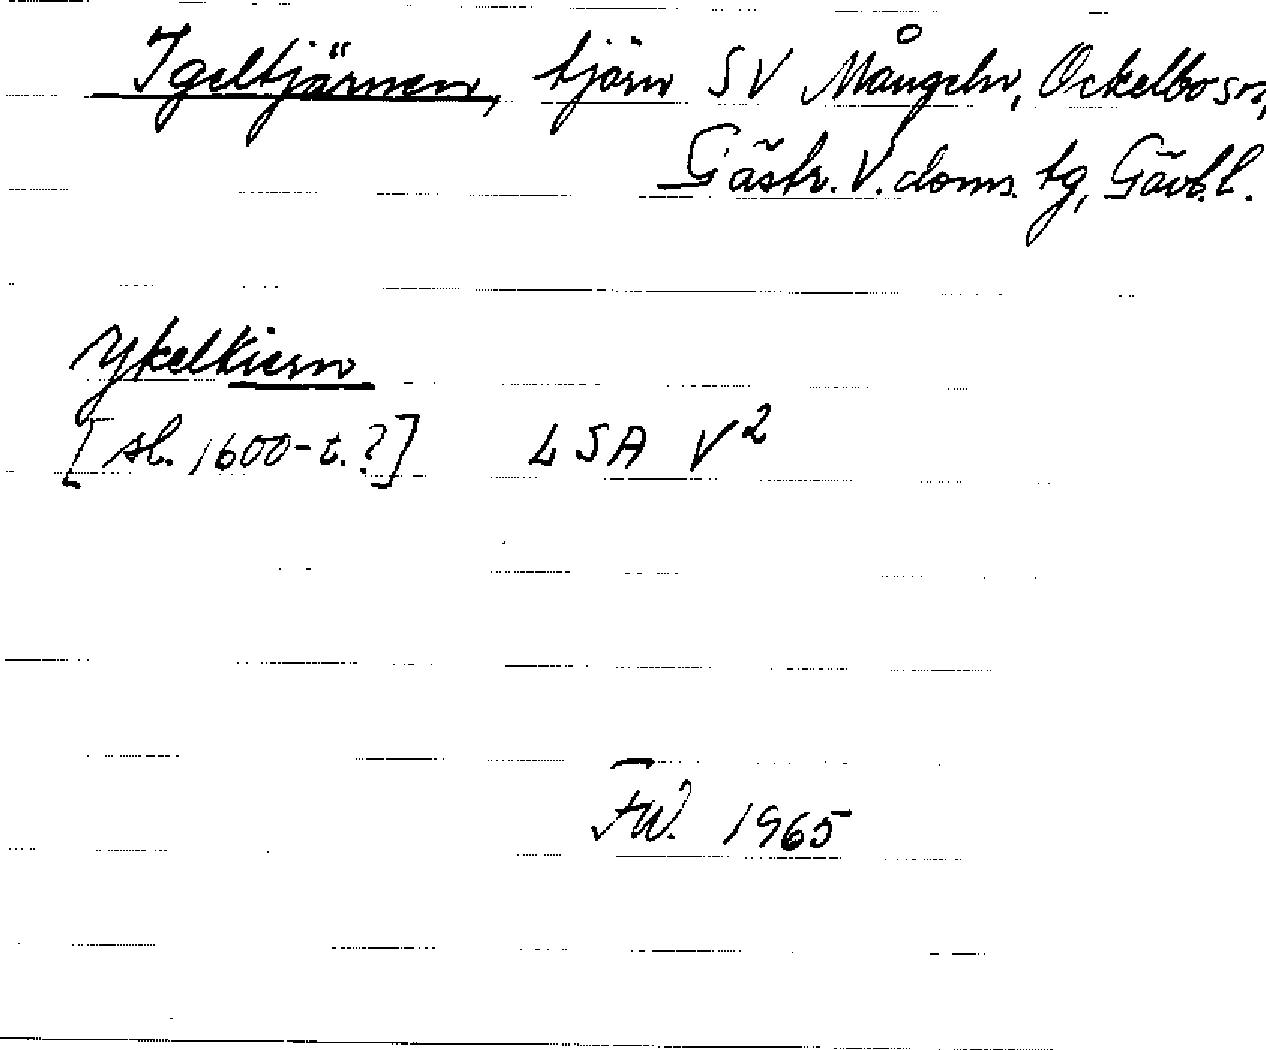 Igeltjärnen, tjärn SV Mången, Ockelbo sn,
Gästr. V. doms. tg, Gävl. l.
Ykelkiern
[sl. 1600-t.?] LSA V2
FW. 1965